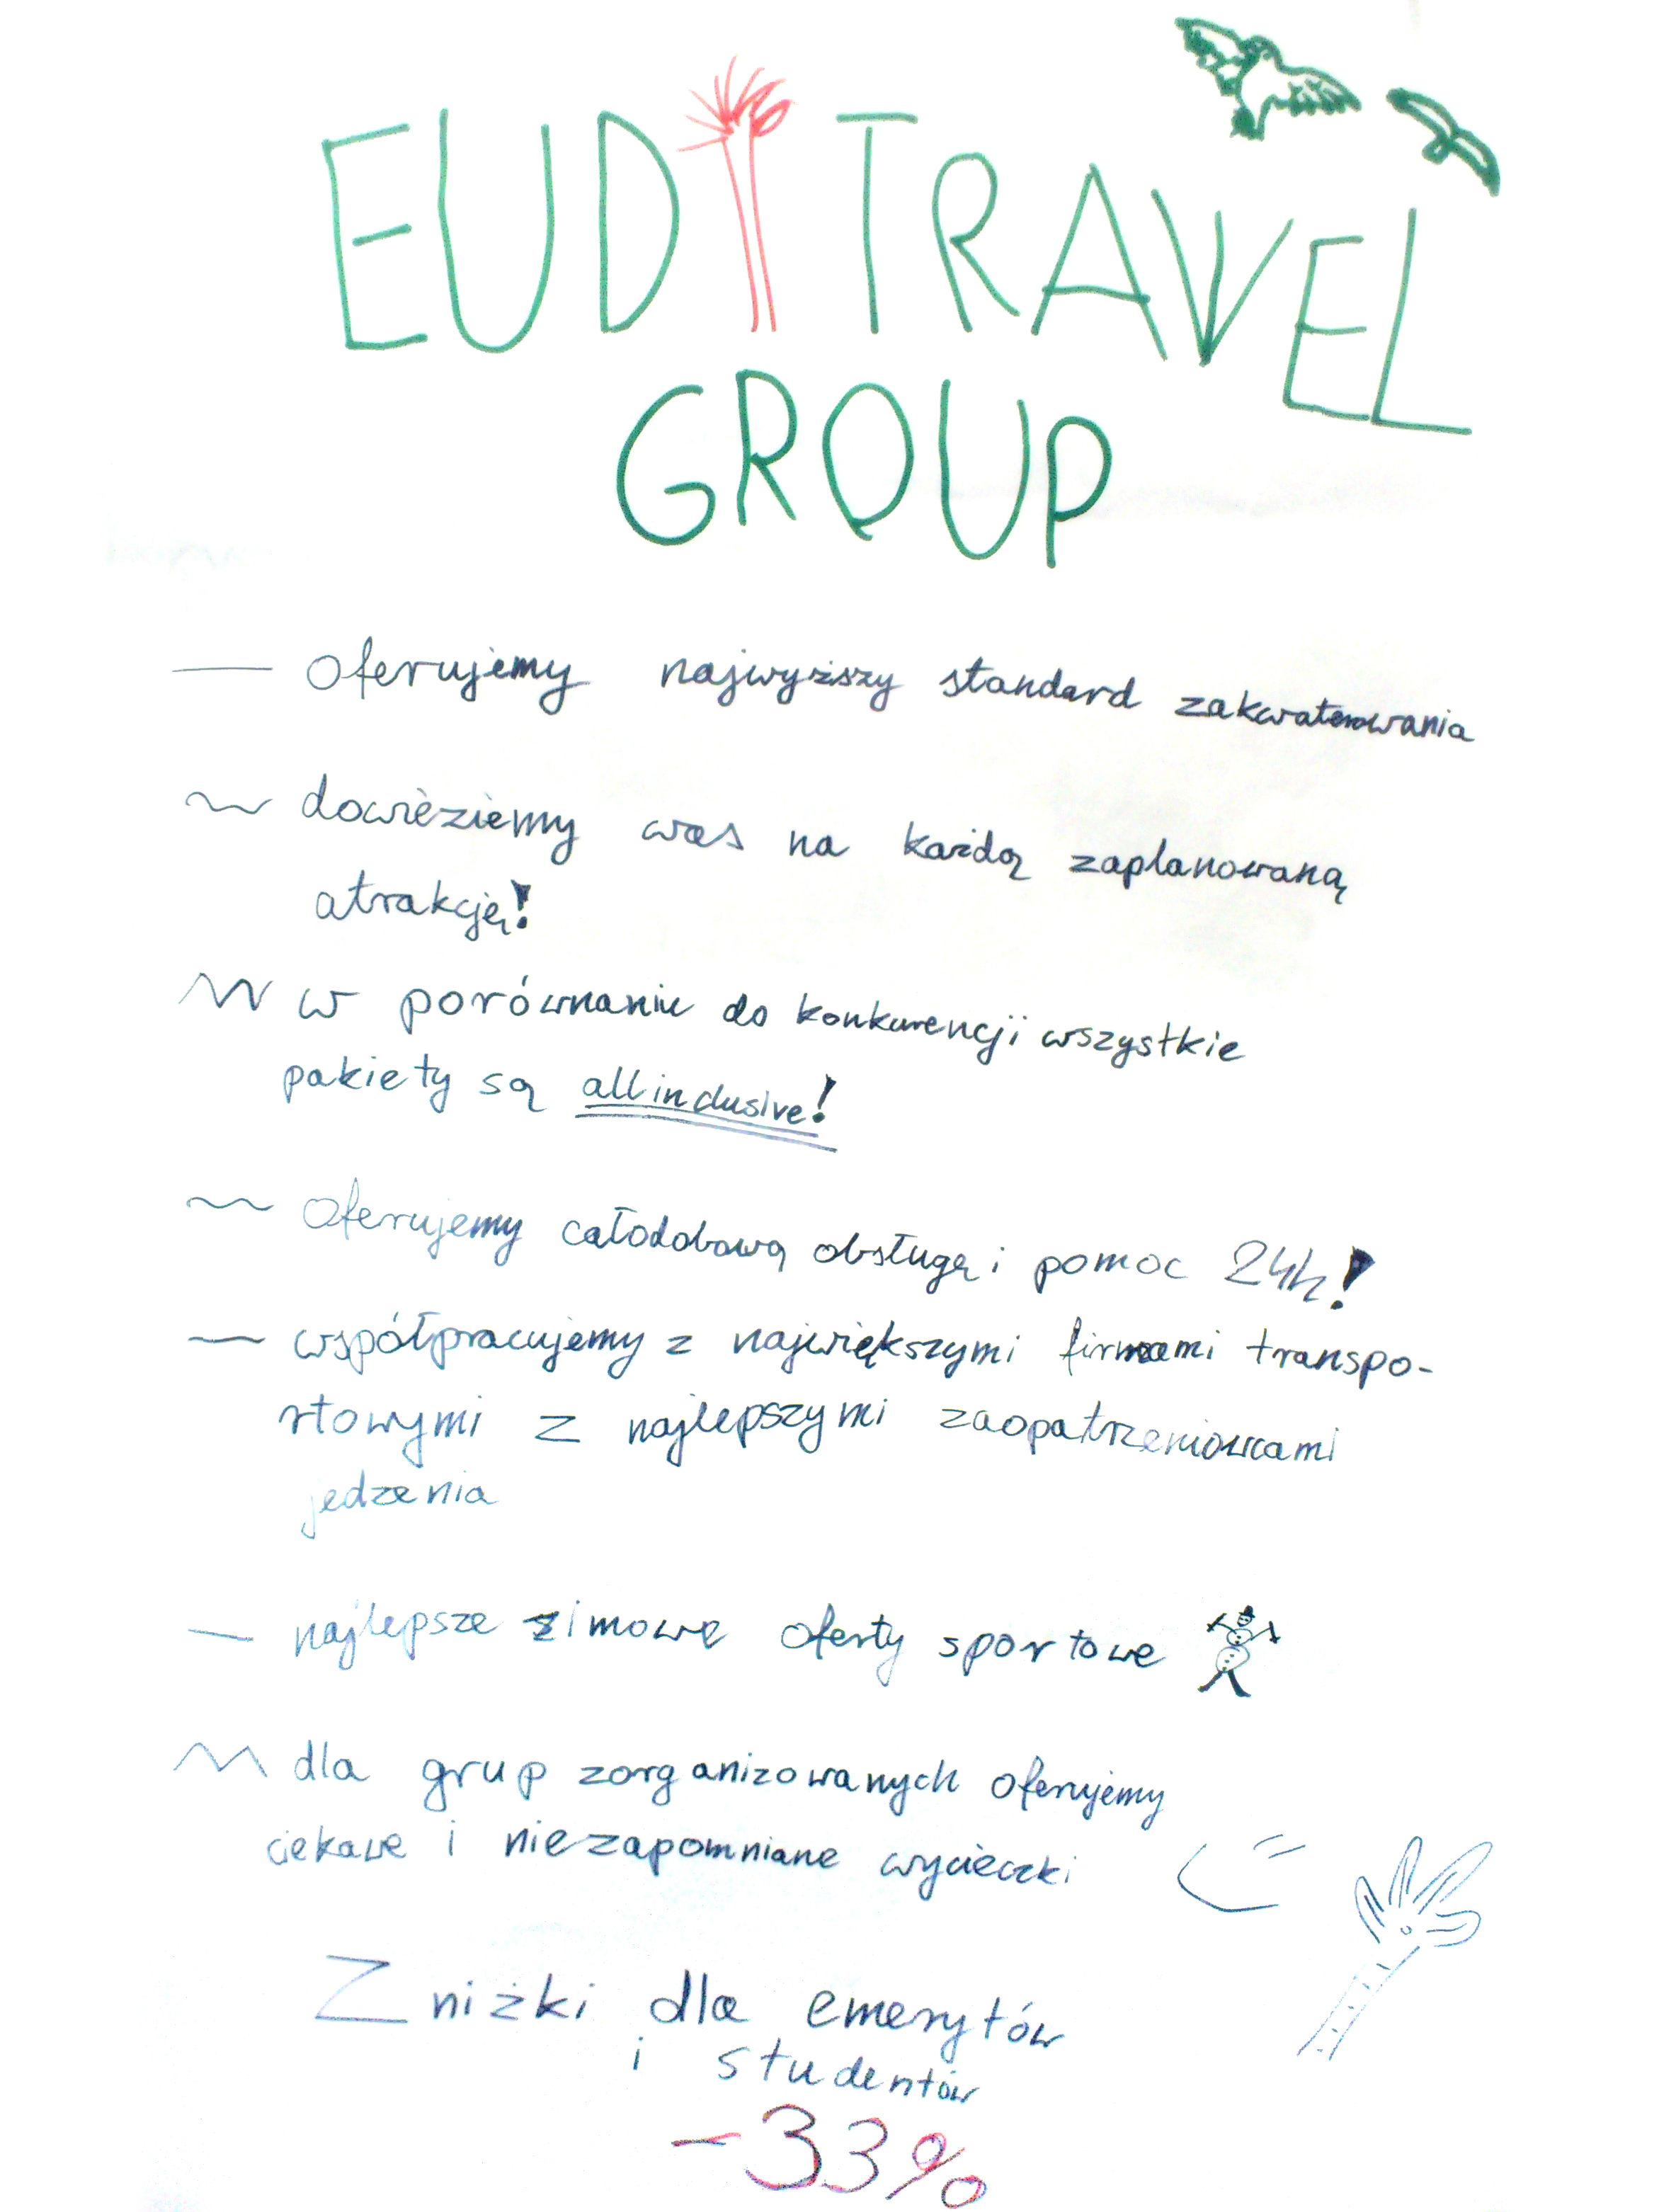 EUDI TRAVEL
GROUP
— Oferujemy najwyższy standard zakwaterowania
~ dowieziemy was na każdą zaplanowaną
atrakcję!
w porównaniu do konkurencji wszystkie
pakiety są all inclusive!
~ Oferujemy całodobową obsługę i pomoc 24h!
— współpracujemy z największymi firmami transpo-
rtowymi z najlepszymi zaopatrzeniowcami
jedzenia
— najlepsze zimowe oferty sportowe
dla grup zorganizowanych oferujemy
ciekawe i niezapomniane wycieczki
Zniżki dla emerytów
i studentów
-33%